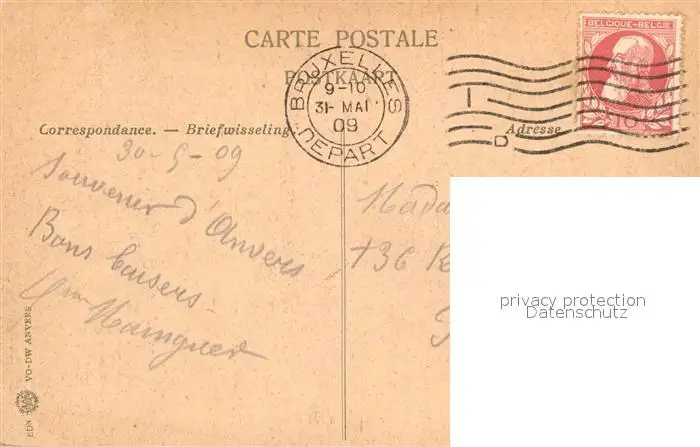 CARTE POSTALE
POSTKAART
BELGIQUE-BELGIE
10
BRUXELLES
9-10
31- MAI
09
DEPART
Correspondance. — Briefwisseling.
Adresse
30-5-09
Souvenir d'Anvers
Bons baisers
Mada
136 R
privacy protection
Datenschutz
EDN VO-DW ANVERS